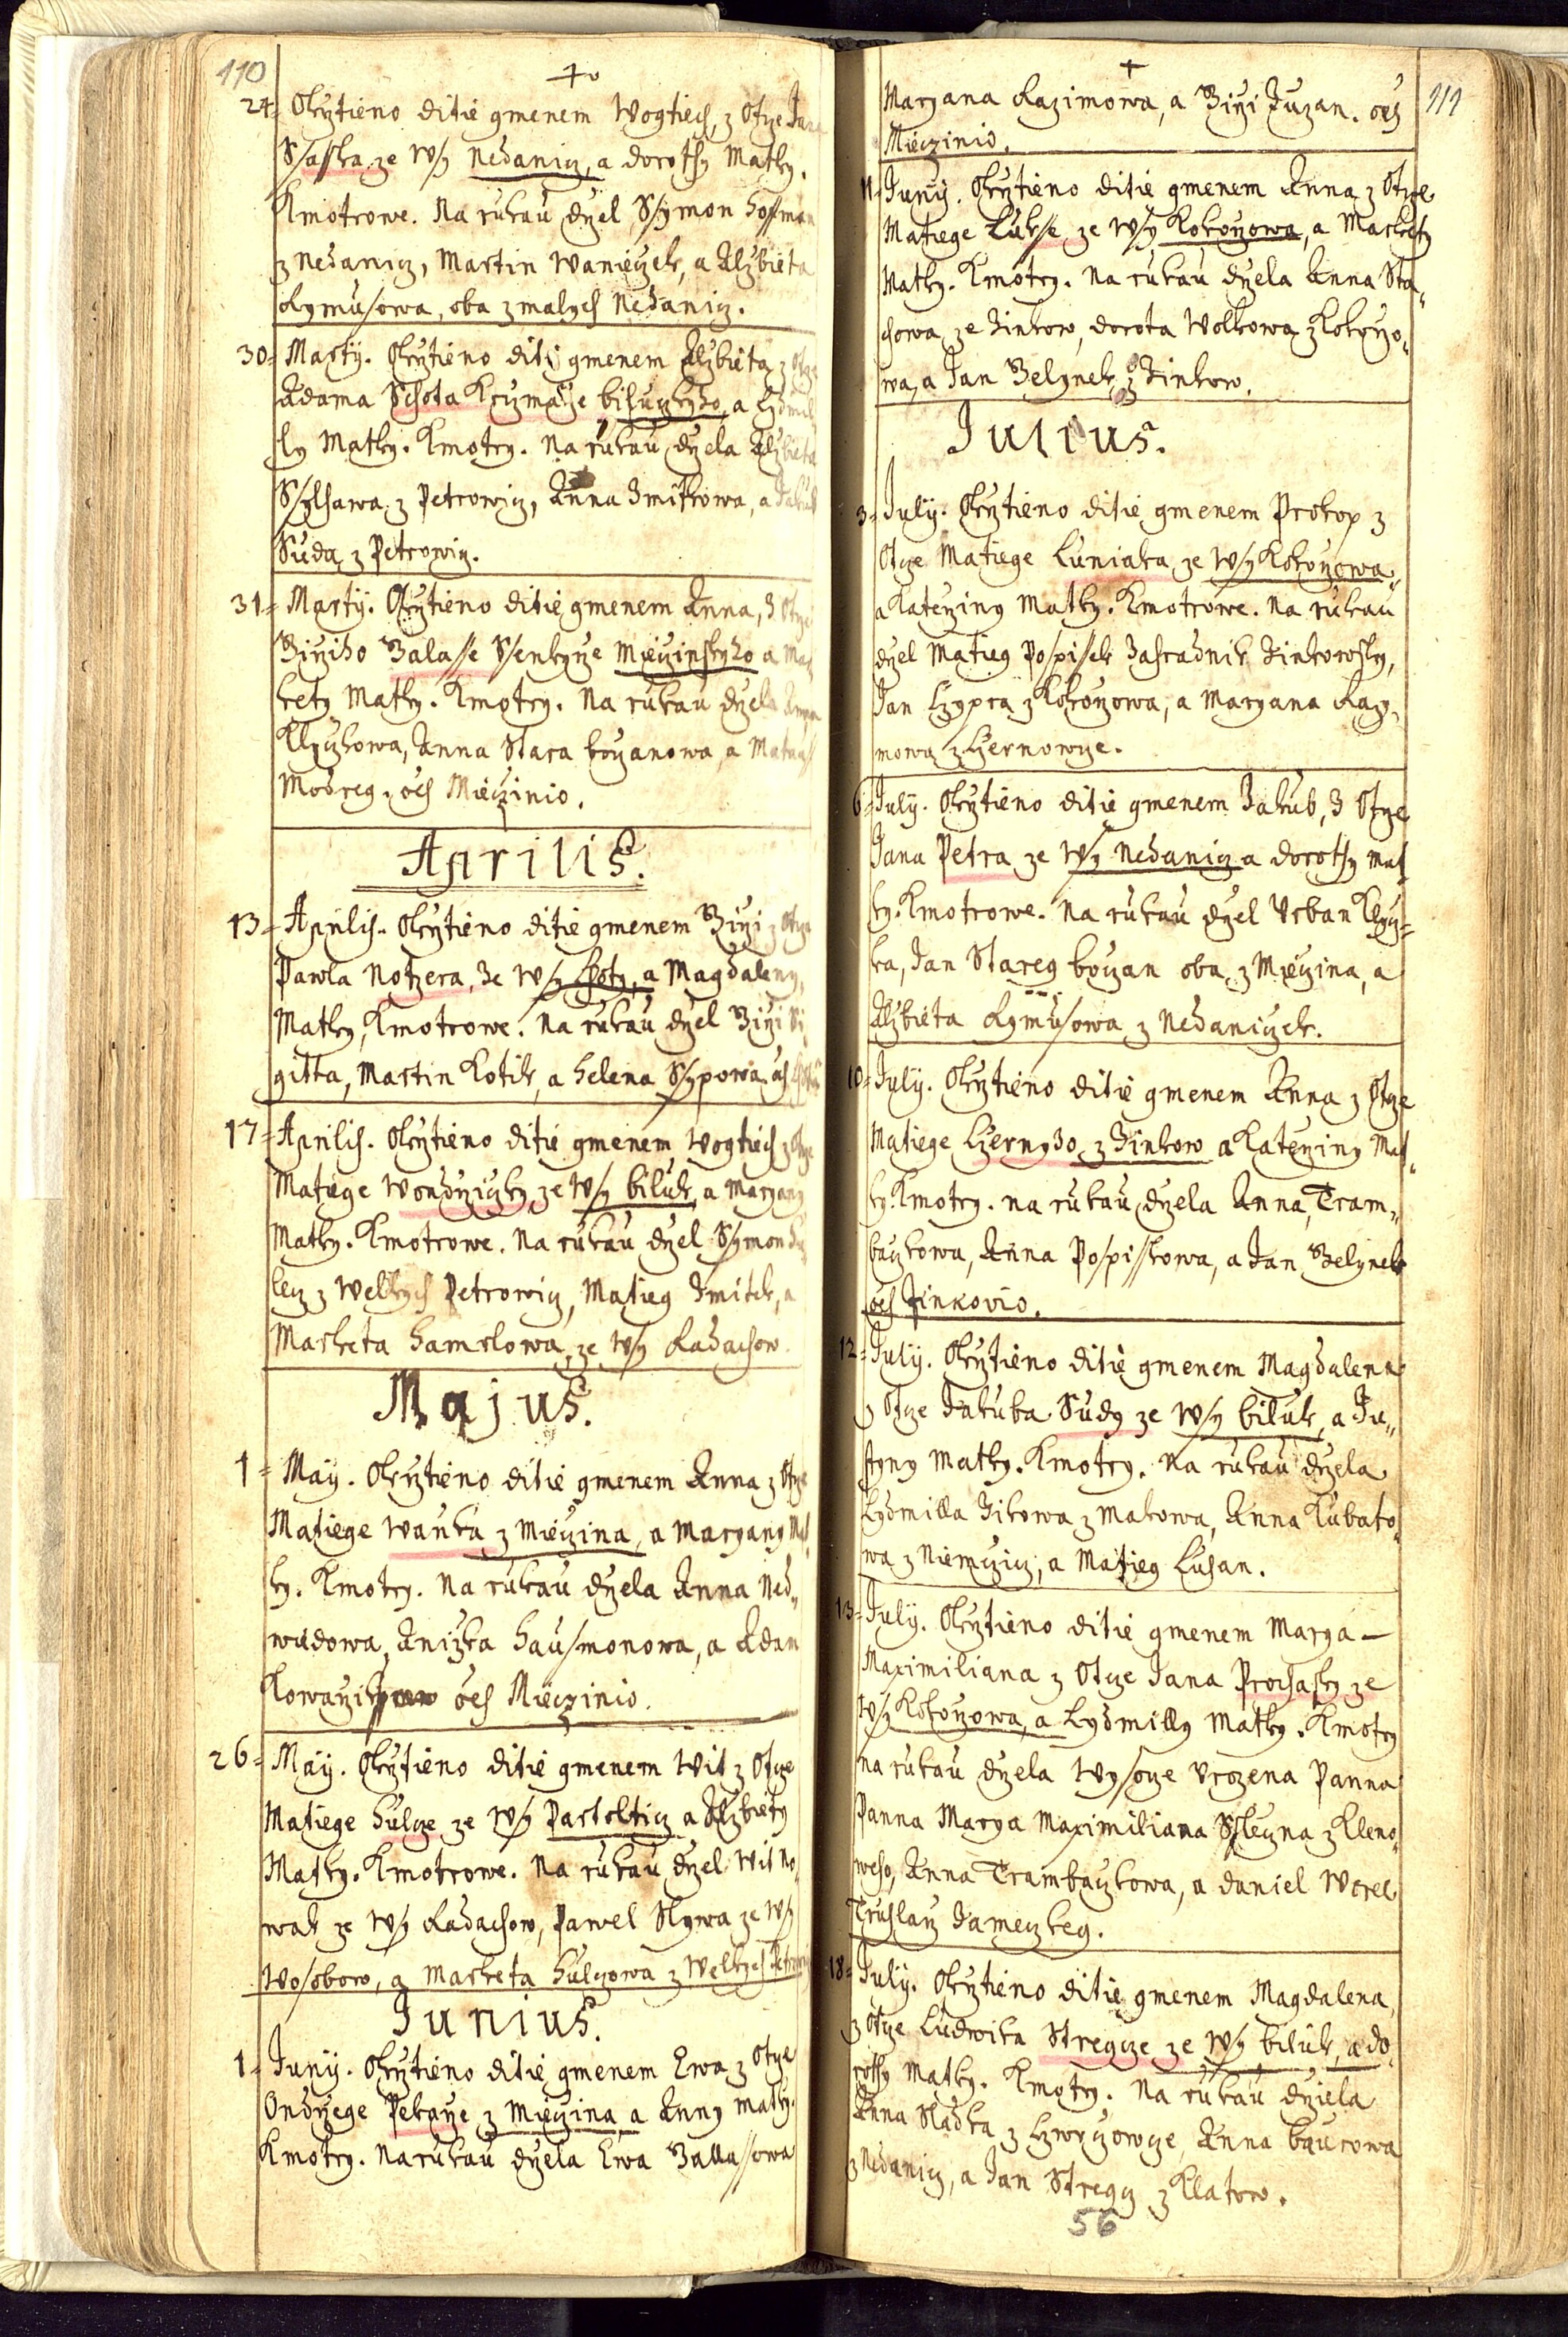 110
24= Okrztieno ditie gmenem Wogtiech, z Otcze Jana
Ssasska ze Wsy Nedanicz, a dorothy Matky.
Kmotrowe. Na rukau drzel Ssymon Hoffman
z Nedanicz, Martin Wanieczek, a Alzbieta
Rymussowa, oba z malych Nedanicz.
30= Martÿ. Okrztieno diti gmenem Alzbieta z Otcze
Adama Schota Krczmarze biluczkyho, a Lydmil
ly Matky. Kmotry. Na rukau drzela Alzbieta
Petrowicz, Anna Zmitkowa, a Jakub
Suda z Petrowicz.
31= Martÿ. Okrztieno ditie gmenem Anna, z Otcze
Girziho Balasse Ssenkyrze Mieczinskyho a Mar
kety Matky. Kmotry. Na rukau drzela Anna
Anna Stara bozanowa, a Matauss
Modreg. oes Mieczinio.
Aprilis.
13= Aprilis. Okrztieno ditie gmenem Girzi z Otcze
Pawla Notzera, ze Wsy Lhoty, a Magdaleny,
Matky, Kmotrowe. Na rukau drzel Girzi Si
gitta, Martin Kotik, a Helena Ssypowa.
17= Aprilis. Okrztieno ditie gmenem Wogtiech z Otcze
Matiege Wondrziczky ze Wsy biluk, a Maryany
Matky. Kmotrowe. Na rukau drzel Ssymon
lecz z Welkych Petrowicz, Matieg Zmitek, a
Marketa Hamrlowa, ze Wsy Radachow.
Majus.
1= Maÿ. Okrztieno ditie gmenem Anna z Otcze
Matiege Wanka z Mieczina, a Maryany Mat
ky. Kmotry. Na rukau drzela Anna Ned„
wiedowa, Anizka Hausmonowa, a Adam
oes Mieczinio.
26= Maÿ. Okrztieno ditie gmenem Wit z Otcze
Matiege Hulcze ze Wsy Partolticz a Alzbiety
Matky. Kmotrowe. Na rukau drzel Wit No„
wak ze Wsy Radachow, Pawel Slywa ze Wsy
Wosobow, a Marketa Hulczowa z Welkych Petrowicz
Junius.
1= Junÿ. Okrztieno ditie gmenem Ewa z Otcze
Ondrzege Pekarze z Mieczina, a Anny matky.
Kmotry. Na rukau drzela Ewa Ballassowa
111
Maryana Razimowa, a Girzi Juzan. oes
Mieczinio.
11= Junÿ. Okrztieno ditie gmenem Anna z Otcze
Matiege Luksse ze Wsy Kokorzowa, a Markety
Matky. Kmotry. Na rukau drzela Anna Sta„
chowa, ze Zinkow, dorota Wolkowa z Kokorzo„
wa, a Jan Zelynek z Zinkow.
Julius.
3= Julÿ. Okrztieno ditie gmenem Prokop z
Otcze Matiege Luniaka ze Wsy Kokorzowa„
a Katerziny Matky. Kmotrowe. Na rukau
drzel Matieg Pospissek Zahradnik Zinkowsky,
Jan Czypra z Kokorzowa, a Maryana Razy„
mowa z Czernowcze.
6= Julÿ. Okrztieno ditie gmenem Jakub, z Otcze
Jana Petra ze Wsy Nedanicz a dorothy Mat
ky. Kmotrowe. Na rukau drzel Urban
ka, Jan Stareg bozan oba z Mieczina, a
Alzbieta Rymussowa z Nedaniczek.
10= Julÿ. Okrztieno ditie gmenem Anna z Otcze
Matiege Czernyho z Zinkow a Katerziny Mat„
ky. Kmotry. na rukau drzela Anna, Tram„
bauzkowa, Anna Pospisskowa, a Jan Zelynek
oes Zinkovio.
12= Julÿ. Okrztieno ditie gmenem Magdalena
z Otcze Jakuba Sudy ze Wsy biluk, a Ju„
styny Matky. Kmotry. Na rukau drzela
Lydmilla Zikowa z Makowa, Anna Kubato„
wa z Niemczicz, a Matieg Lusan.
13= Julÿ. Okrztieno ditie gmenem Marya –
Maximiliana z Otcze Jana Prochasky ze
Wsy Kokorzowa, a Lydmilly Matky. Kmotry
na rukau drzela Wysocze Urozena Panna
Panna Marya Maximiliana z Kleno„
weho, Anna Trambauzkowa, a Daniel Worel
Truhlarz Zameczkeg.
18= Julÿ. Okrztieno ditie gmenem Magdalena,
z Otcze Ludwika Stregcze ze Wsy biluk, a do„
rothy Matky. Kmotry. Na rukau drziela
Anna Sladka z Anna baurowa
z Nedanicz, a Jan Stregcz z Klatow.
56